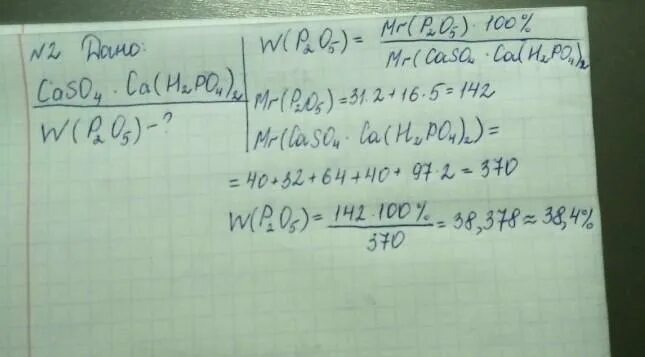 N2 Дано:
CaSO₄ · Ca(H₂PO₄)₂
W(P₂O₅) - ?
W(P₂O₅) = Mr(P₂O₅) · 100% / Mr(CaSO₄ · Ca(H₂PO₄)₂
Mr(P₂O₅) = 31·2 + 16·5 = 142
Mr(CaSO₄ · Ca(H₂PO₄)₂) =
= 40 + 32 + 64 + 40 + 97·2 = 370
W(P₂O₅) = 142 · 100% / 370 = 38,378 ≈ 38,4%